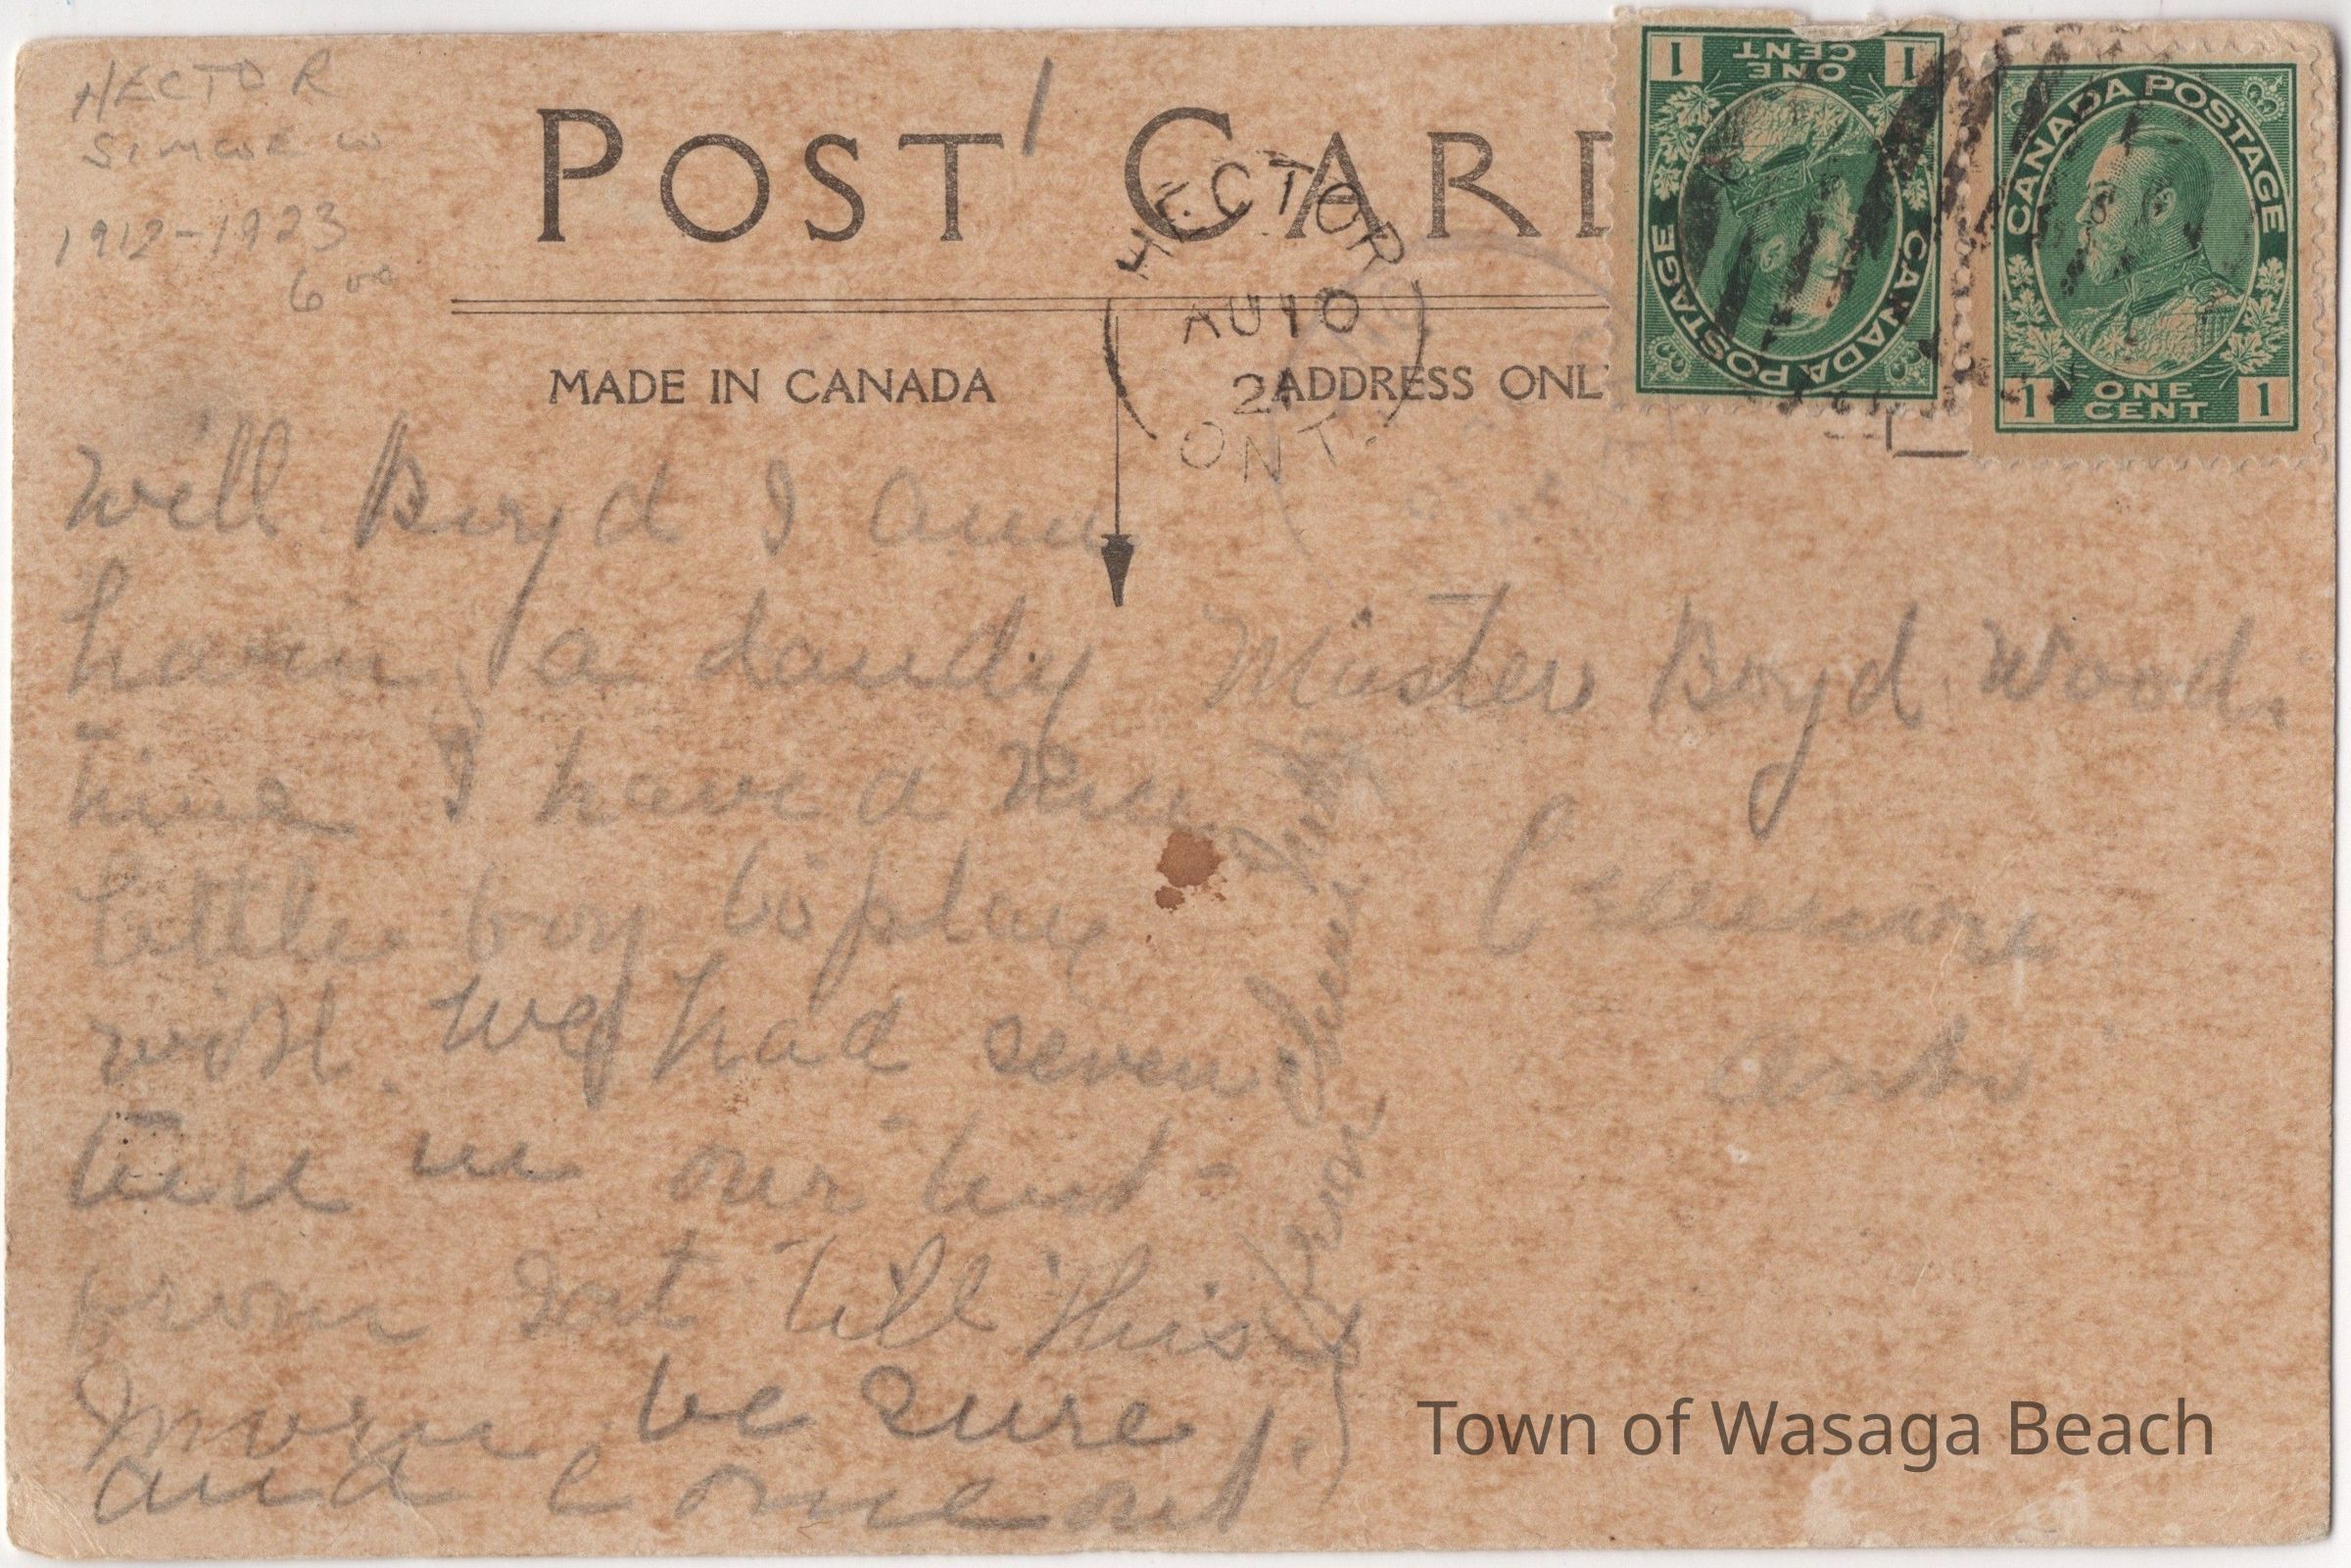 HECTOR
SIMCOE W
1912-1923
6 00
1
POST CARD
HECTOR
AU 10
21
ONT.
MADE IN CANADA
ADDRESS ONL
1 ONE CENT 1
CANADA POSTAGE
CANADA POSTAGE
1 ONE CENT 1
Will Boyd I am
having a dandy
time I have a nice
little boy to play
with. We had seven
in our tent
from Sat till this
morn be sure
and come out
from
Master Boyd Wood.
Creemore
Ont
Town of Wasaga Beach